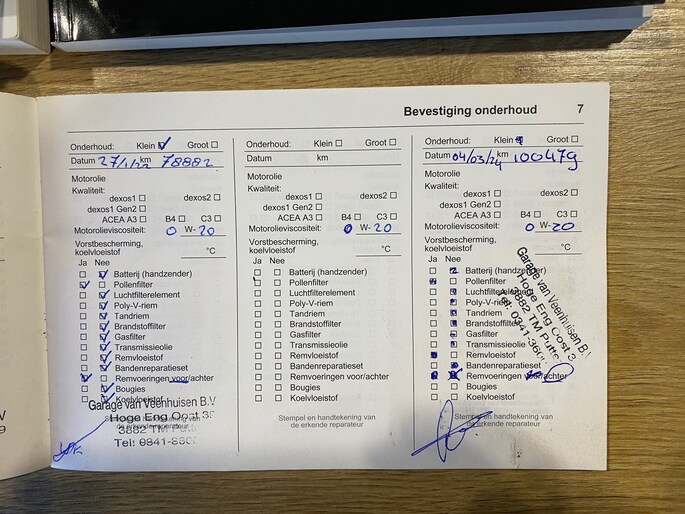 Bevestiging onderhoud 7
Onderhoud: Klein Groot
Datum 27/1/22 km 78882
Motorolie
Kwaliteit:
dexos1 dexos2
dexos1 Gen2
ACEA A3 B4 C3
Motorolieviscositeit: 0 W- 20
Vorstbescherming,
koelvloeistof °C
Ja Nee
Batterij (handzender)
Pollenfilter
Luchtfilterelement
Poly-V-riem
Tandriem
Brandstoffilter
Gasfilter
Transmissieolie
Remvloeistof
Bandenreparatieset
Remvoeringen voor/achter
Bougies
Koelvloeistof
Garage van Veenhuisen B.V
Hoge Eng Oost 38
3882 TM
Tel: 0341-360
Onderhoud: Klein Groot
Datum km
Motorolie
Kwaliteit:
dexos1 dexos2
dexos1 Gen2
ACEA A3 B4 C3
Motorolieviscositeit: 0 W-20
Vorstbescherming,
koelvloeistof °C
Ja Nee
Batterij (handzender)
Pollenfilter
Luchtfilterelement
Poly-V-riem
Tandriem
Brandstoffilter
Gasfilter
Transmissieolie
Remvloeistof
Bandenreparatieset
Remvoeringen voor/achter
Bougies
Koelvloeistof
Stempel en handtekening van
de erkende reparateur
Onderhoud: Klein Groot
Datum 04/03/24 km 100479
Motorolie
Kwaliteit:
dexos1 dexos2
dexos1 Gen2
ACEA A3 B4 C3
Motorolieviscositeit: 0 W-20
Vorstbescherming,
koelvloeistof °C
Ja Nee
Batterij (handzender)
Pollenfilter
Luchtfilterelement
Poly-V-riem
Tandriem
Brandstoffilter
Gasfilter
Transmissieolie
Remvloeistof
Bandenreparatieset
Remvoeringen voor/achter
Bougies
Koelvloeistof
Garage van Veenhuisen B.V
Hoge Eng Oost 3
3882 TM Putte
Stempel en handtekening van
de erkende reparateur